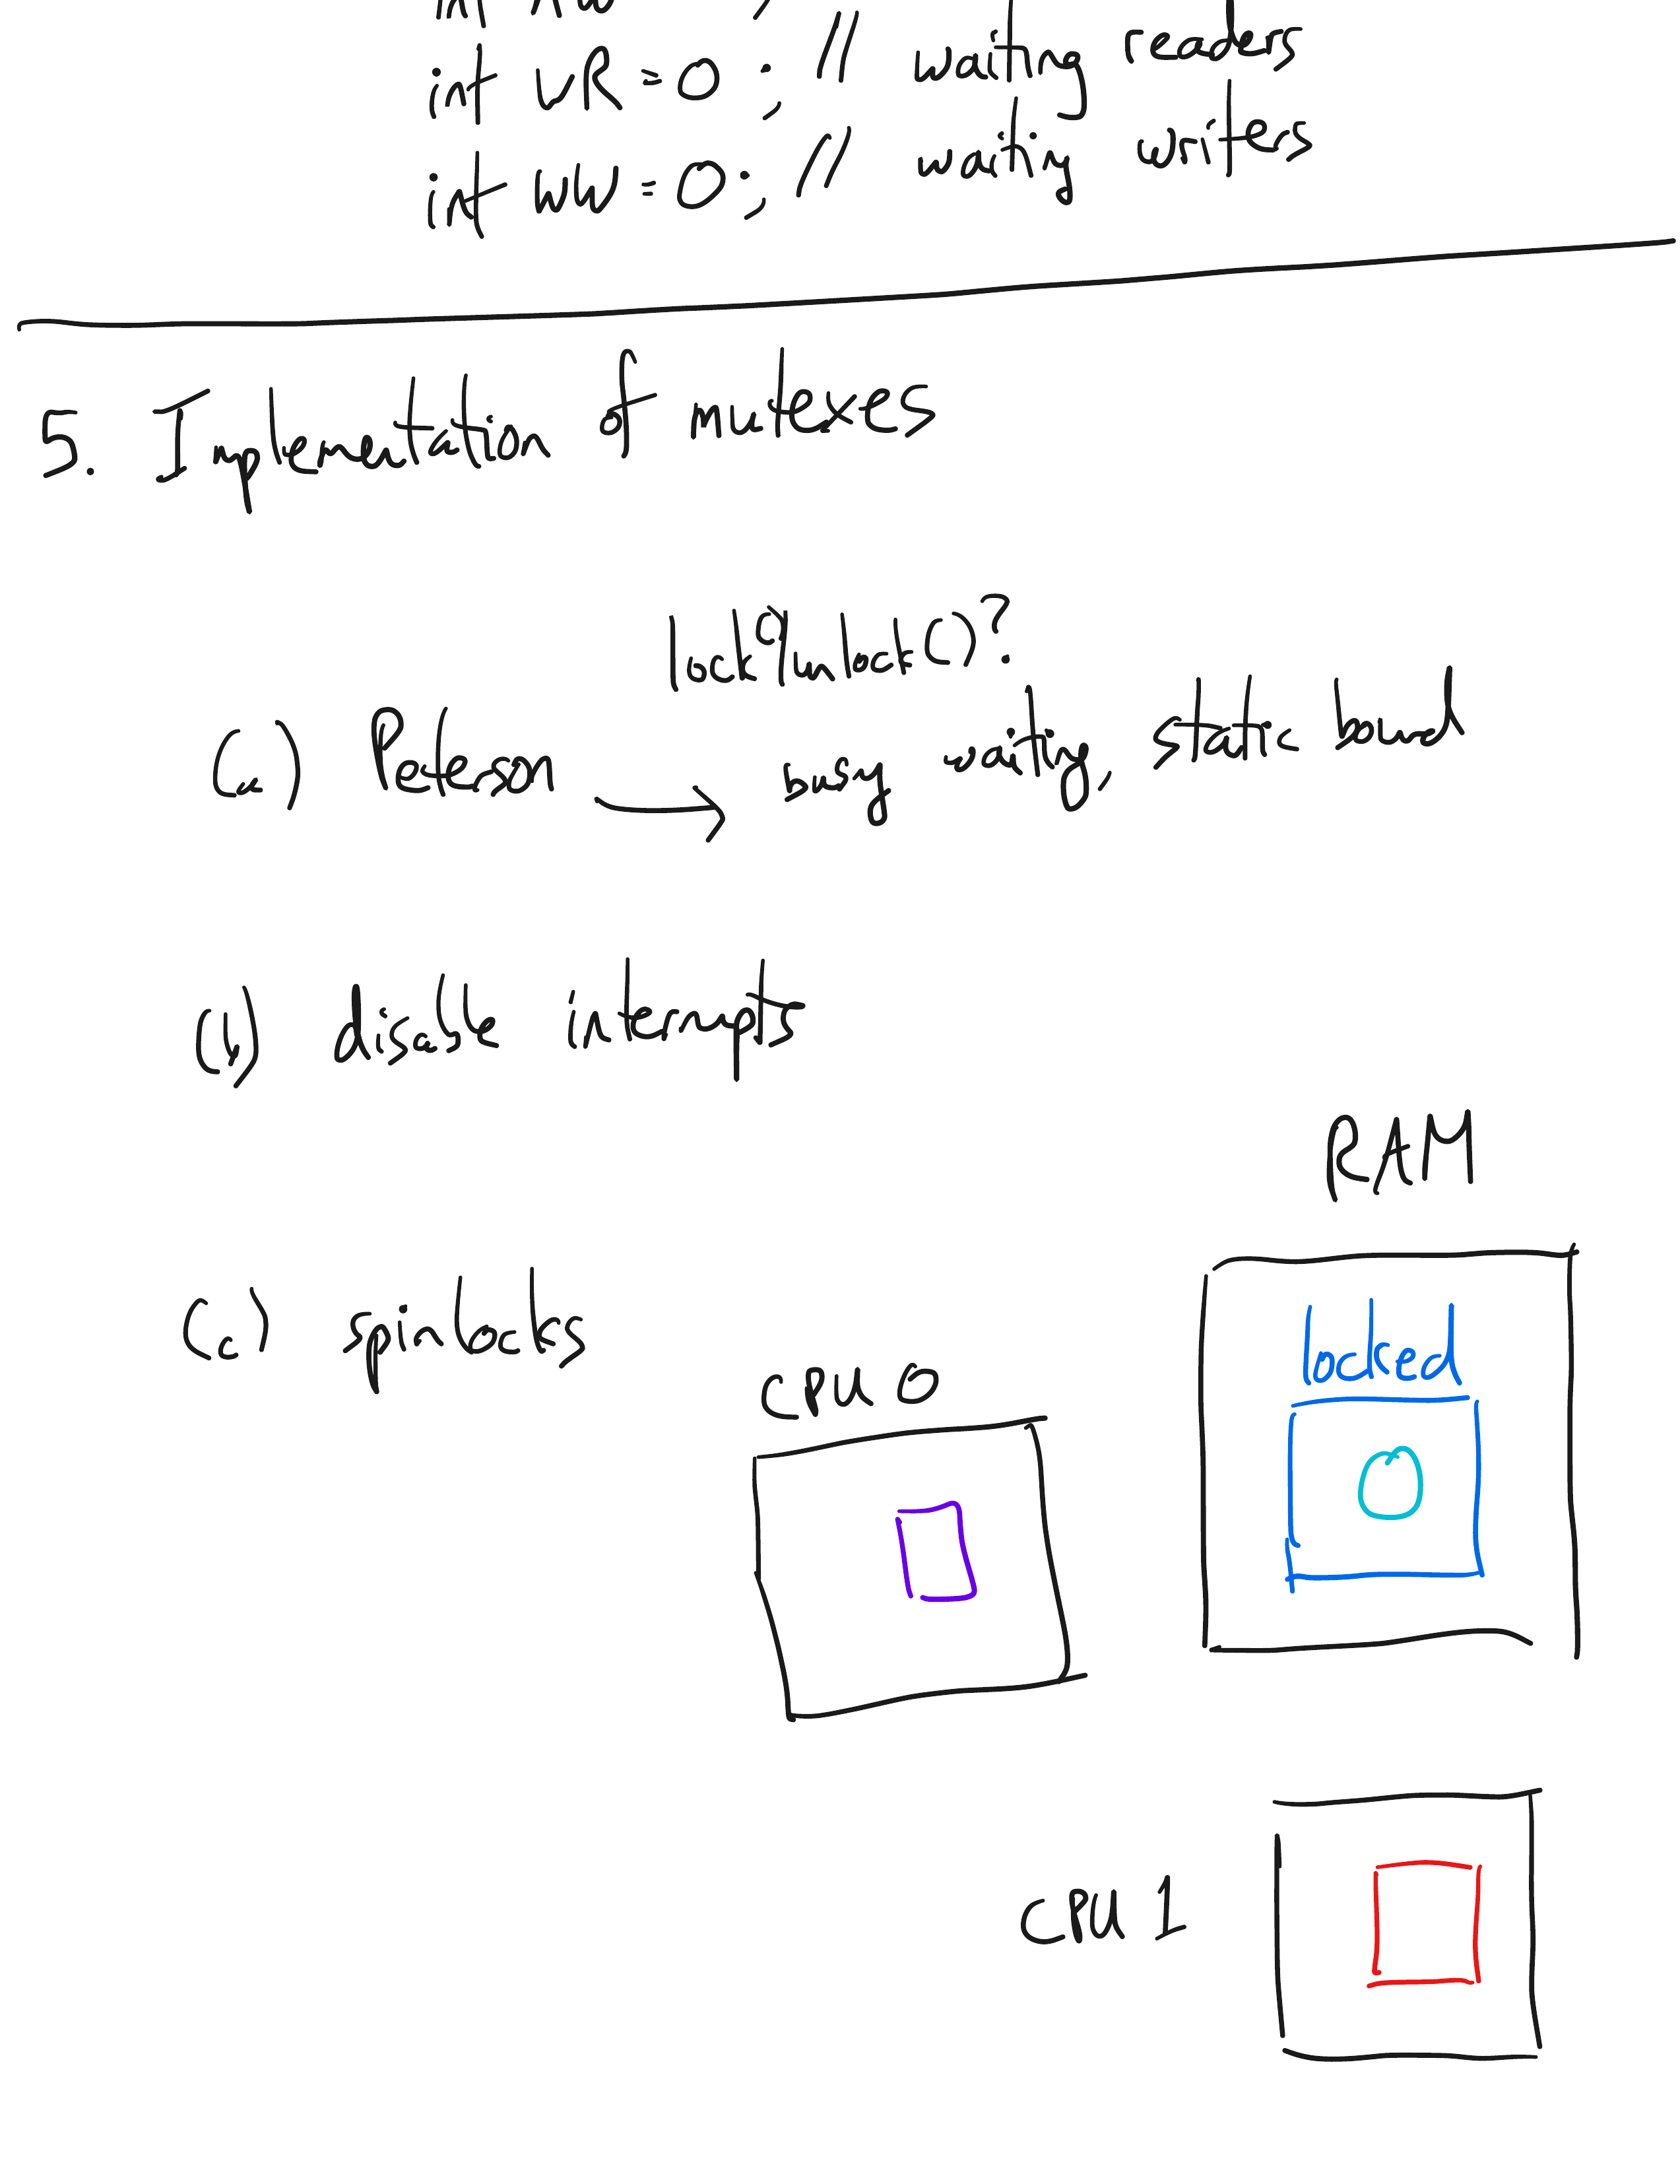 int WR = 0; // waiting readers
int WW = 0; // waiting writers
5. Implementation of mutexes
lock()/unlock()?
(a) Peterson → busy waiting, static bound
(b) disable interrupts
RAM
(c) spinlocks
locked
CPU 0
0
CPU 1